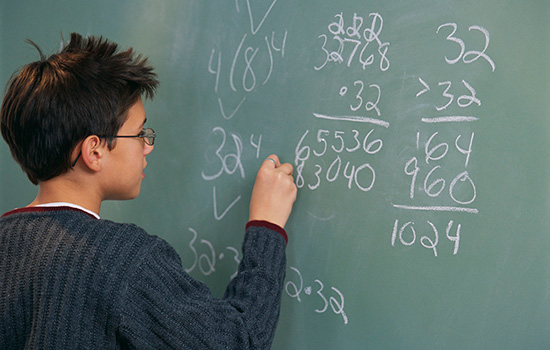 4(8)⁴
32⁴
32·32·32
222
32768
·32
65536
83040
32
×32
164
960
1024